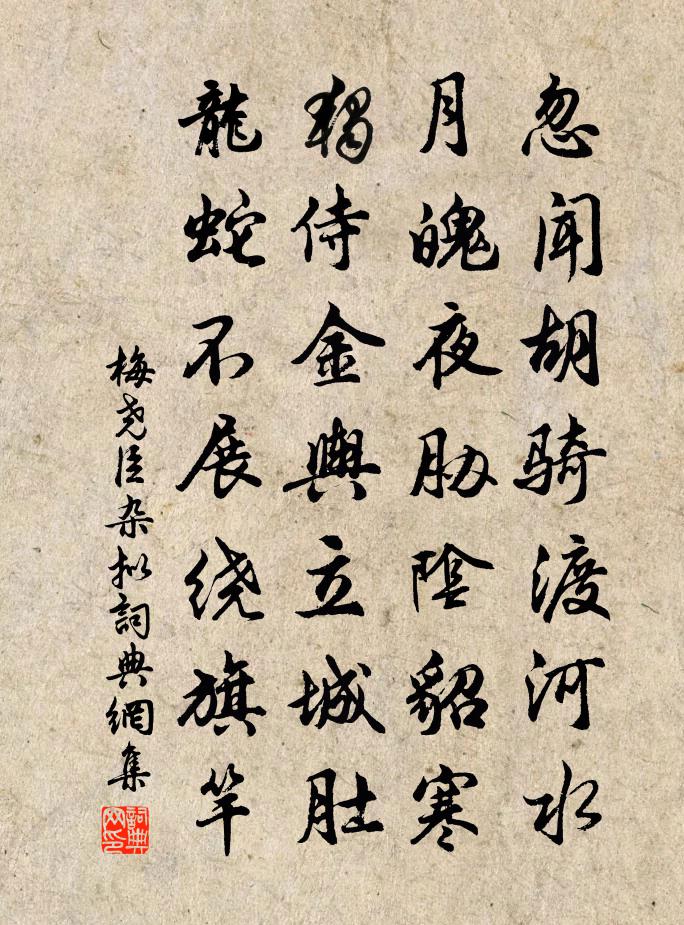 忽闻胡骑渡河水
月魄夜胁陰貂寒
獨侍金輿立城肚
龍蛇不展绕旗竿
梅尧臣杂拟詞典網集
詞典网印